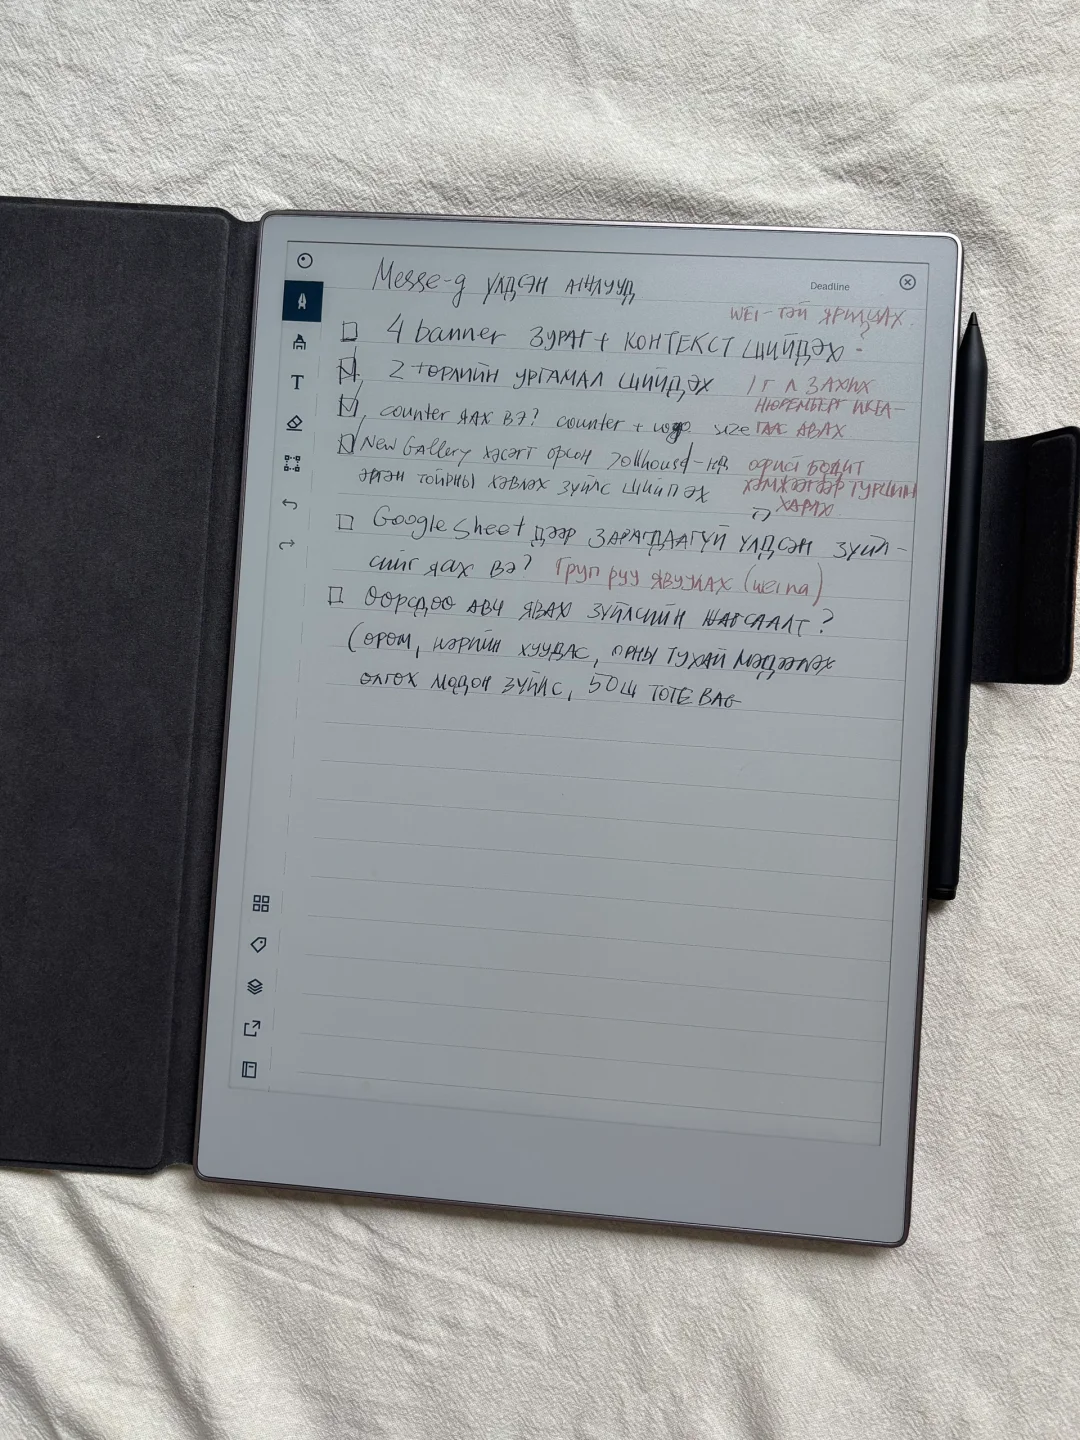 Messe-д ҮЛДСЭН АЖЛУУД
Deadline
WEI-ТЭЙ ЯРИЛЦАХ.
4 banner ЗУРАГ + КОНТЕКСТ ШИЙДЭХ
2 төрлийн УРГАМАЛ ШИЙДЭХ
ЗАХИХ
НЮРЕМБЕРГ ИКЕА-
counter ЯАХ ВЭ? counter + logo size
ГААС АВАХ
New Gallery ХЭСЭГТ
ОФИСТ БОДИТ
ЭРГЭН ТОЙРНЫ ХЭВЛЭХ ЗҮЙЛС ШИЙДЭХ
ХЭМЖЭЭГЭЭР ТУРШИН
ХАРАХ
Google Sheet ДЭЭР ЗАРАГДААГҮЙ ҮЛДСЭН ЗҮЙЛ-
СИЙГ ЯАХ ВЭ? Груп РУУ ЯВУУЛАХ (weina)
ӨӨРСДӨӨ АВЧ ЯВАХ ЗҮЙЛСИЙН ЖАГСААЛТ?
(ӨРӨМ, НЭРИЙН ХУУДАС, ОРНЫ ТУХАЙ МЭДЭЭЛЭХ
ӨЛГӨХ МОДОН ЗҮЙЛС, 50Ш TOTE BAG